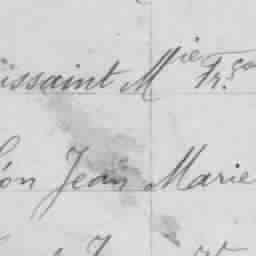 issaint Mie Frço
on Jean Marie